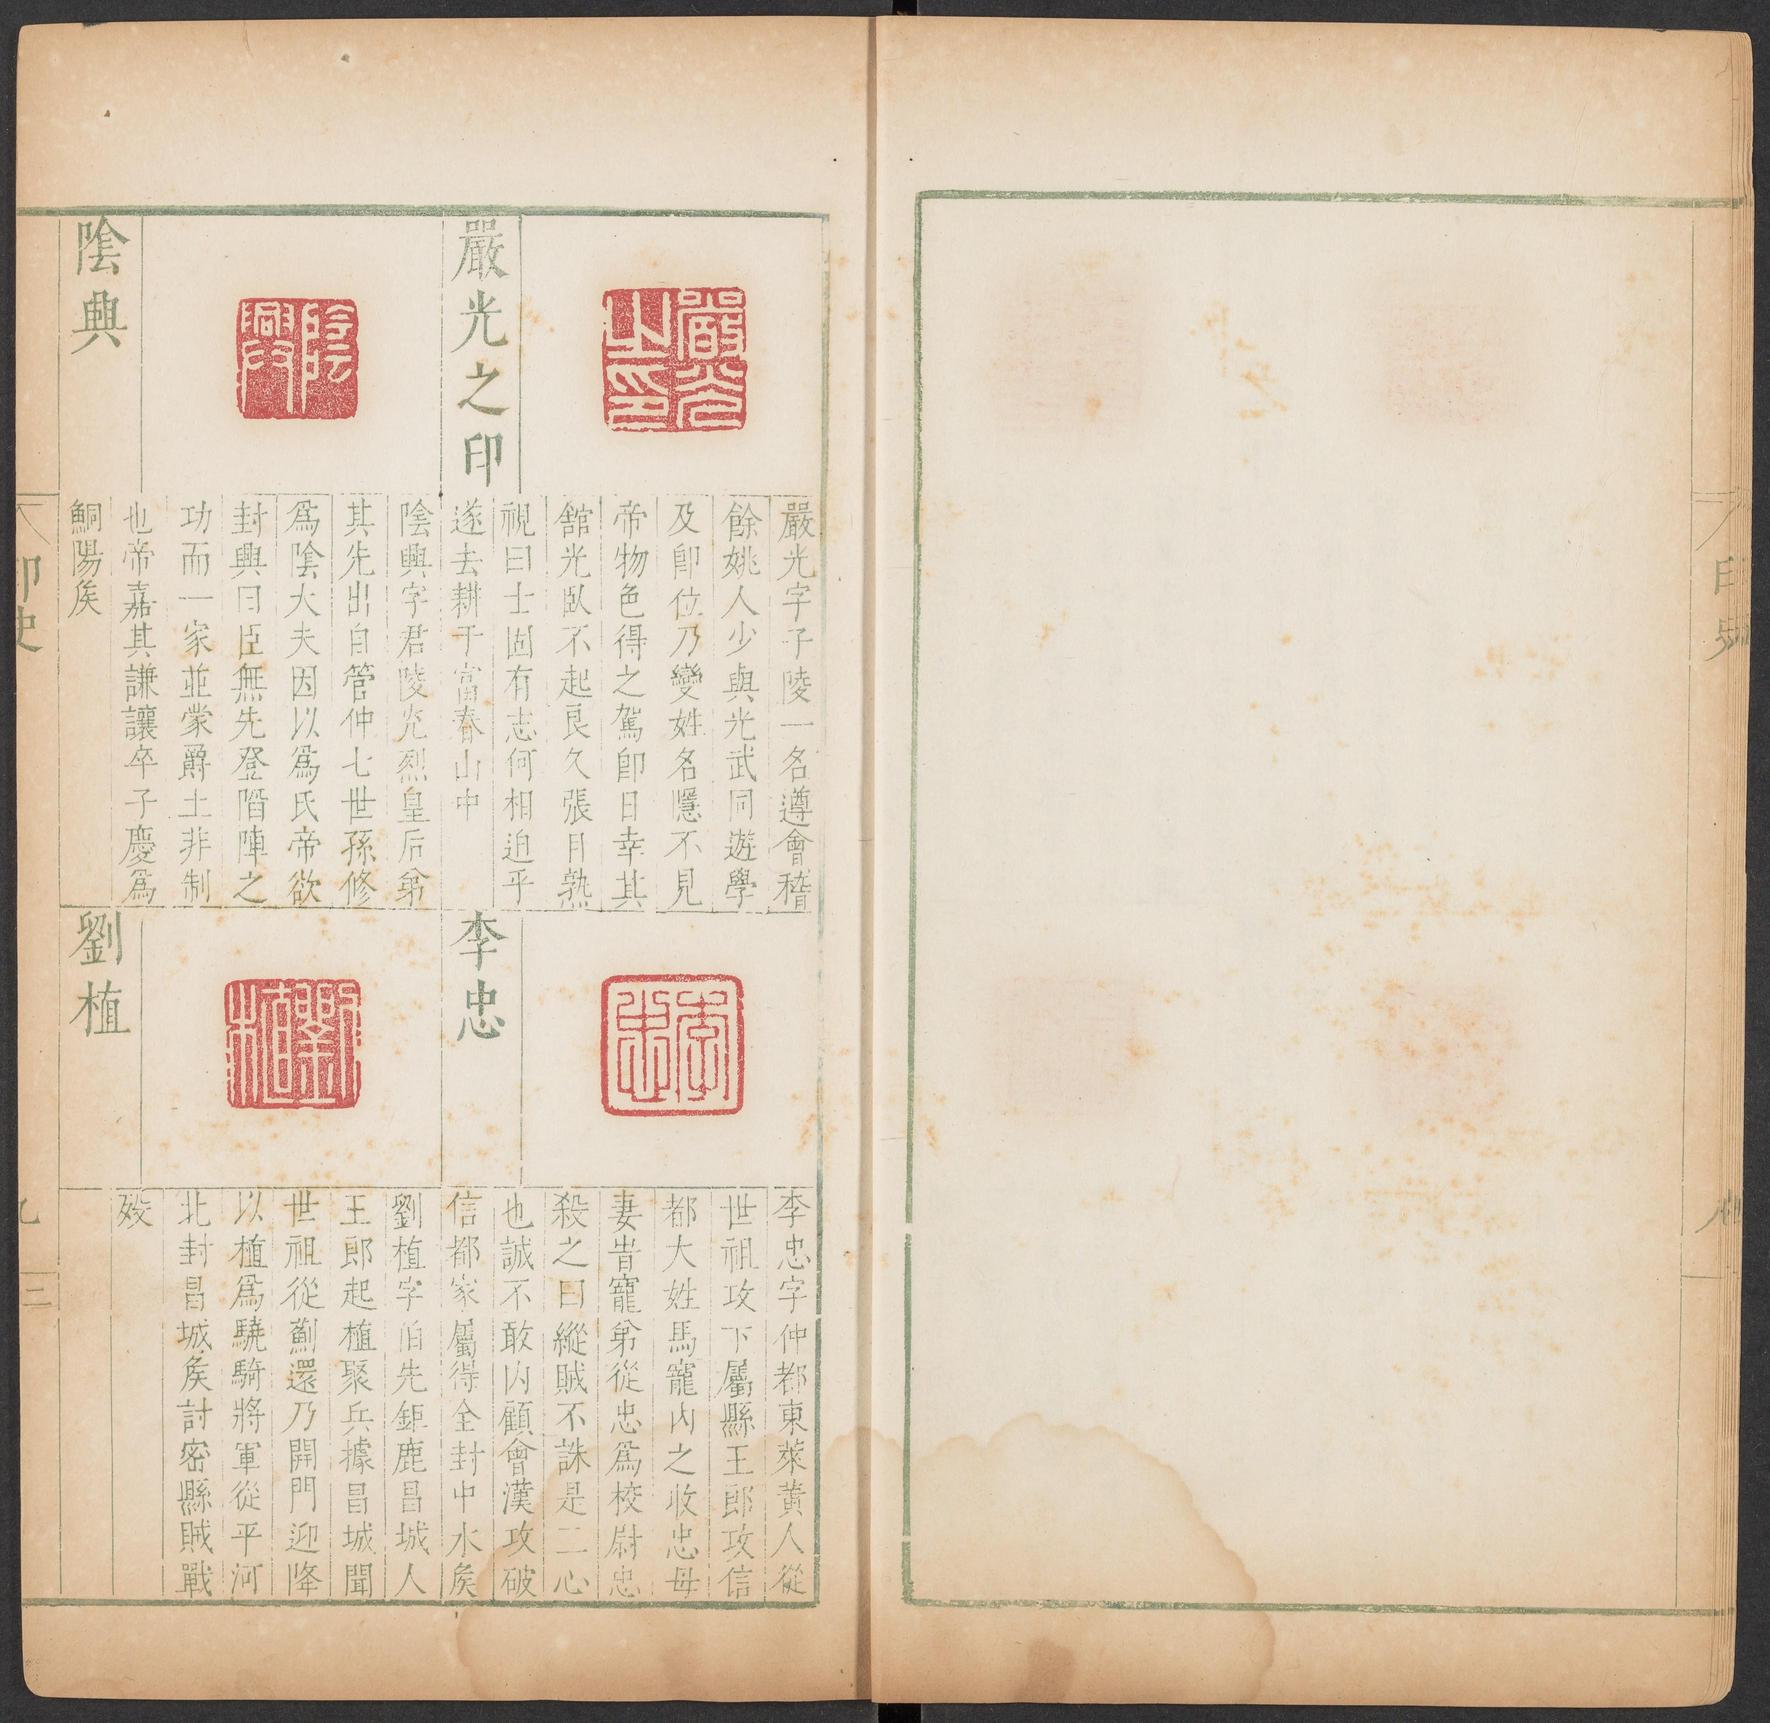 嚴光之印
嚴光字子陵一名遵會稽
餘姚人少與光武同遊學
及卽位乃變姓名隱不見
帝物色得之駕卽日幸其
舘光臥不起良久張目熟
視曰士固有志何相迫乎
遂去耕于富春山中
陰興
陰興字君陵光烈皇后弟
其先出自管仲七世孫修
爲陰大夫因以爲氏帝欲
封興曰臣無先登陷陣之
功而一家並蒙爵土非制
也帝嘉其謙讓卒子慶爲
鮦陽矦
李忠
李忠字仲都東萊黃人從
世祖攻下屬縣王郎攻信
都大姓馬寵內之收忠母
妻昔寵弟從忠爲校尉忠
殺之曰縱賊不誅是二心
也誠不敢內顧會漢攻破
信都家屬得全封中水矦
劉植
劉植字伯先鉅鹿昌城人
王郎起植聚兵據昌城聞
世祖從薊還乃開門迎降
以植爲驍騎將軍從平河
北封昌城矦討密縣賊戰
歿
印史
三